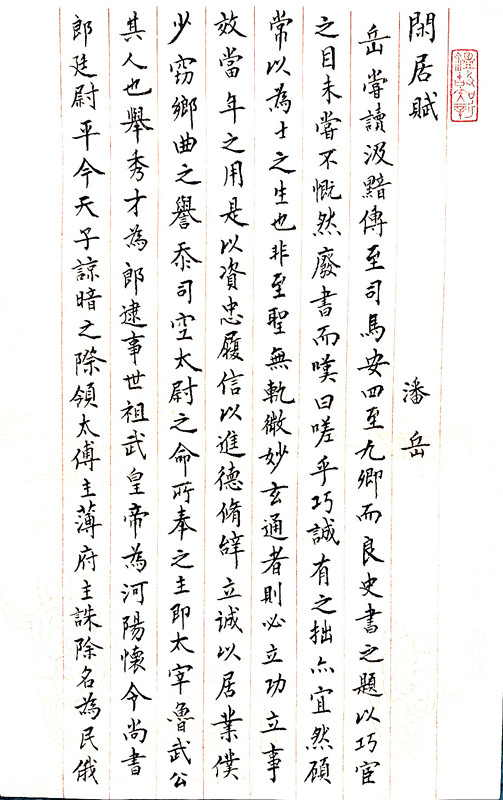 閑居賦
潘岳
岳嘗讀汲黯傳至司馬安四至九卿而良史書之題以巧宦
之目未嘗不慨然廢書而嘆曰嗟乎巧誠有之拙亦宜然顧
常以為士之生也非至聖無軌微妙玄通者則必立功立事
效當年之用是以資忠履信以進德脩辭立誠以居業僕
少竊鄉曲之譽忝司空太尉之命所奉之主即太宰魯武公
其人也舉秀才為郎逮事世祖武皇帝為河陽懷令尚書
郎廷尉平今天子諒暗之際領太傅主薄府主誅除名為民俄